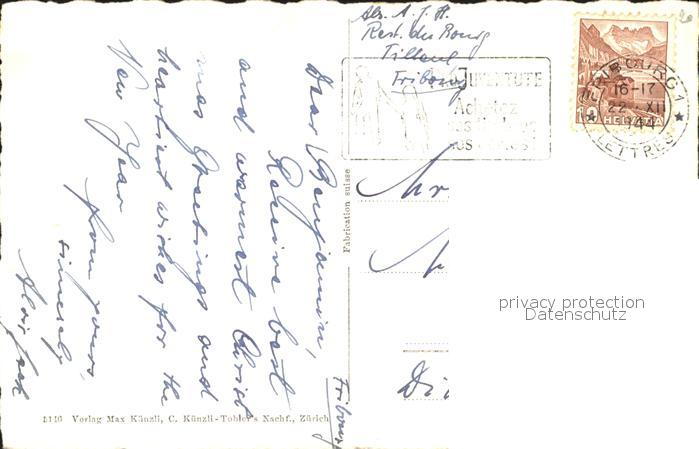 Abs. A. J. H.
Rest. du Bourg
Tilleul
Fribourg
JUVENTUTE
Achetez
FRIBOURG 1
16-17
22. XII
1944
LETTRES
10
HELVETIA
Fribourg
Dear Benjamin,
Receive best
and warmest Christ
mas Greetings and
heartiest wishes for the
New Year
from yours
sincerely
Mr
Fabrication suisse
privacy protection
Datenschutz
5146 Verlag Max Künzli, C. Künzli-Tobler's Nachf., Zürich